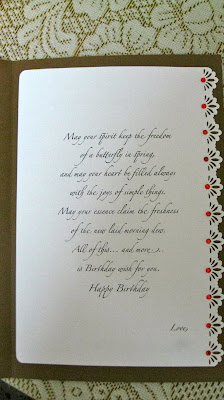 May your spirit keep the freedom
of a butterfly in spring,
and may your heart be filled always
with the joys of simple things.
May your essence claim the freshness
of the new laid morning dew.
All of this... and more
is Birthday wish for you.
Happy Birthday
Love,